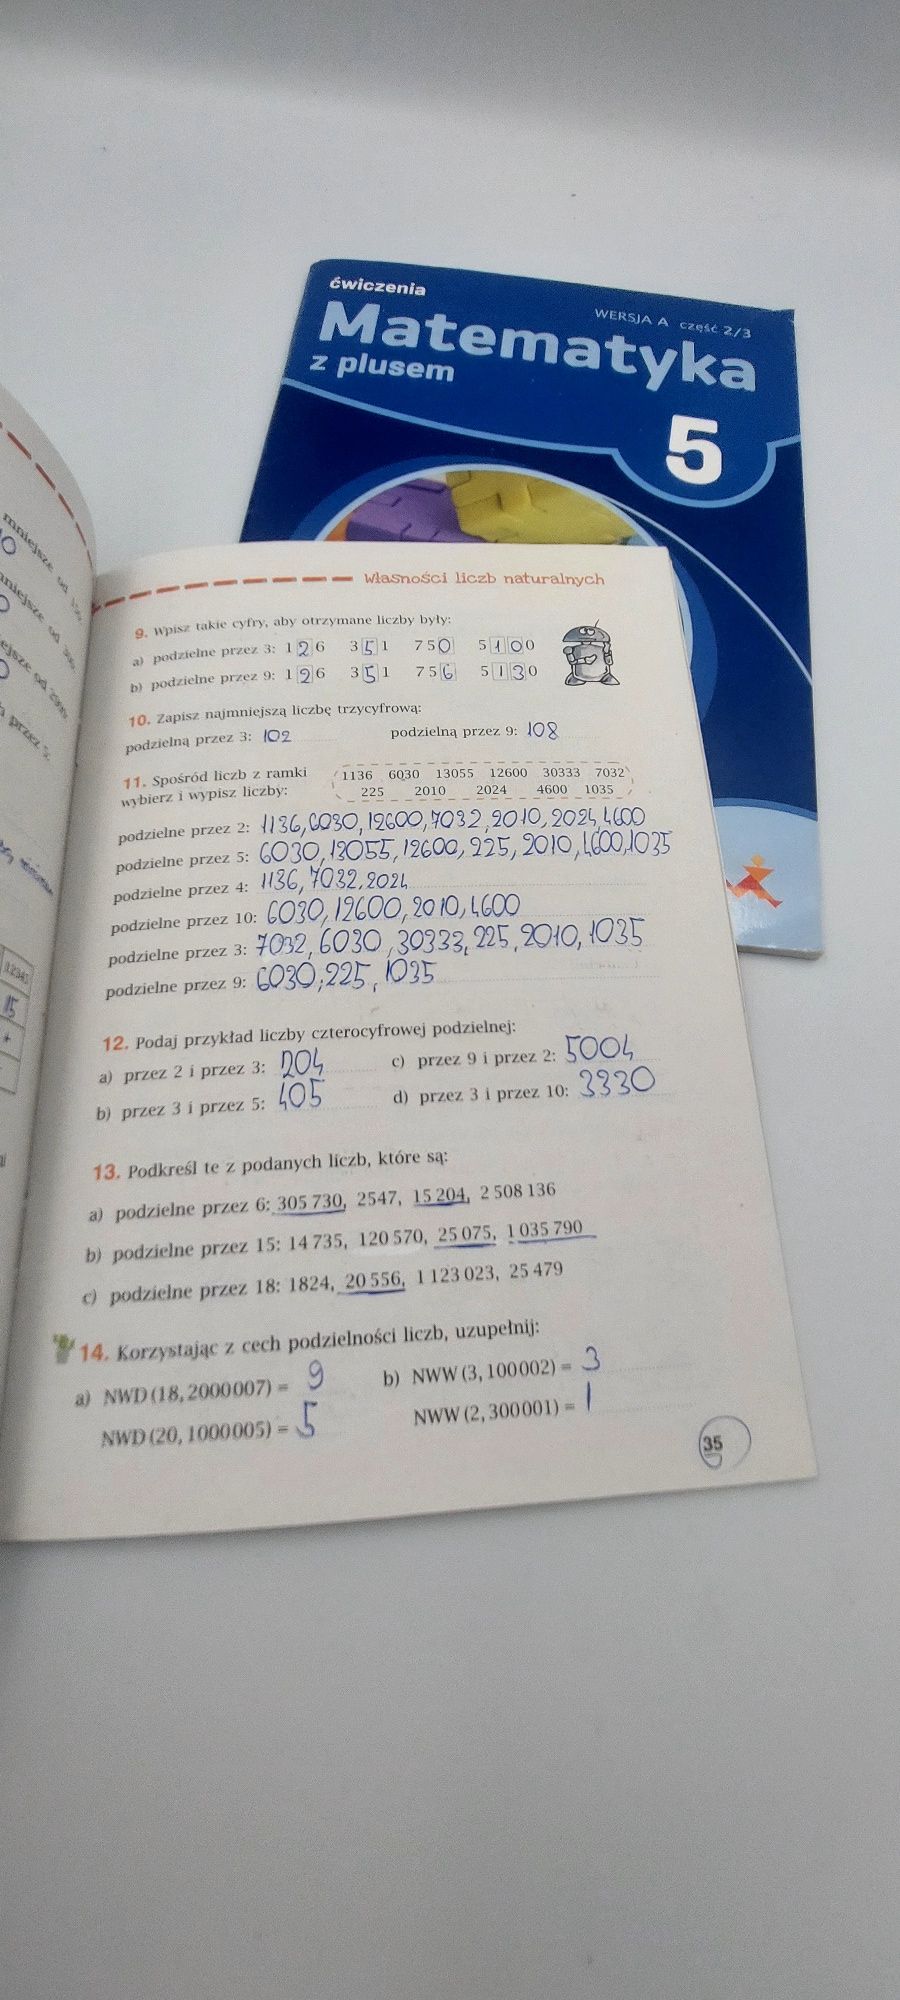 ćwiczenia
WERSJA A część 2/3
Matematyka
z plusem
5
Własności liczb naturalnych
9. Wpisz takie cyfry, aby otrzymane liczby były:
a) podzielne przez 3: 1 2 6 3 5 1 7 5 0 5 1 0 0
b) podzielne przez 9: 1 2 6 3 5 1 7 5 6 5 1 3 0
10. Zapisz najmniejszą liczbę trzycyfrową:
podzielną przez 3: 102 podzielną przez 9: 108
11. Spośród liczb z ramki
wybierz i wypisz liczby:
1136 6030 13055 12600 30333 7032
225 2010 2024 4600 1035
podzielne przez 2: 1136, 6030, 12600, 7032, 2010, 2024, 4600
podzielne przez 5: 6030, 13055, 12600, 225, 2010, 4600, 1035
podzielne przez 4: 1136, 7032, 2024
podzielne przez 10: 6030, 12600, 2010, 4600
podzielne przez 3: 7032, 6030, 30333, 225, 2010, 1035
podzielne przez 9: 6030, 225, 1035
12. Podaj przykład liczby czterocyfrowej podzielnej:
a) przez 2 i przez 3: 204 c) przez 9 i przez 2: 5004
b) przez 3 i przez 5: 405 d) przez 3 i przez 10: 3330
13. Podkreśl te z podanych liczb, które są:
a) podzielne przez 6: 305 730, 2547, 15 204, 2 508 136
b) podzielne przez 15: 14 735, 120 570, 25 075, 1 035 790
c) podzielne przez 18: 1824, 20 556, 1 123 023, 25 479
14. Korzystając z cech podzielności liczb, uzupełnij:
a) NWD (18, 2000007) = 9 b) NWW (3, 100002) = 3
NWD (20, 1000005) = 5 NWW (2, 300001) = 1
35
mniejsze od 150
mniejsze od
od 2000
przez 5:
15